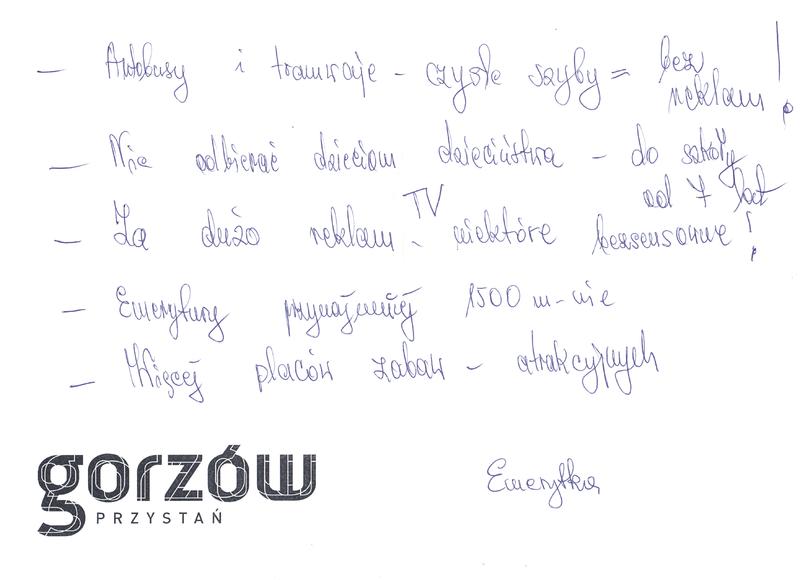 — Autobusy i tramwaje - czyste szyby = bez reklam!
— Nie odbierać dzieciom dzieciństwa - do szkoły od 7 lat
— Za dużo reklam TV, niektóre bezsensowne!
— Emerytury przynajmniej 1500 m-nie
— Więcej placów zabaw - atrakcyjnych
Emerytka
gorzów
PRZYSTAŃ